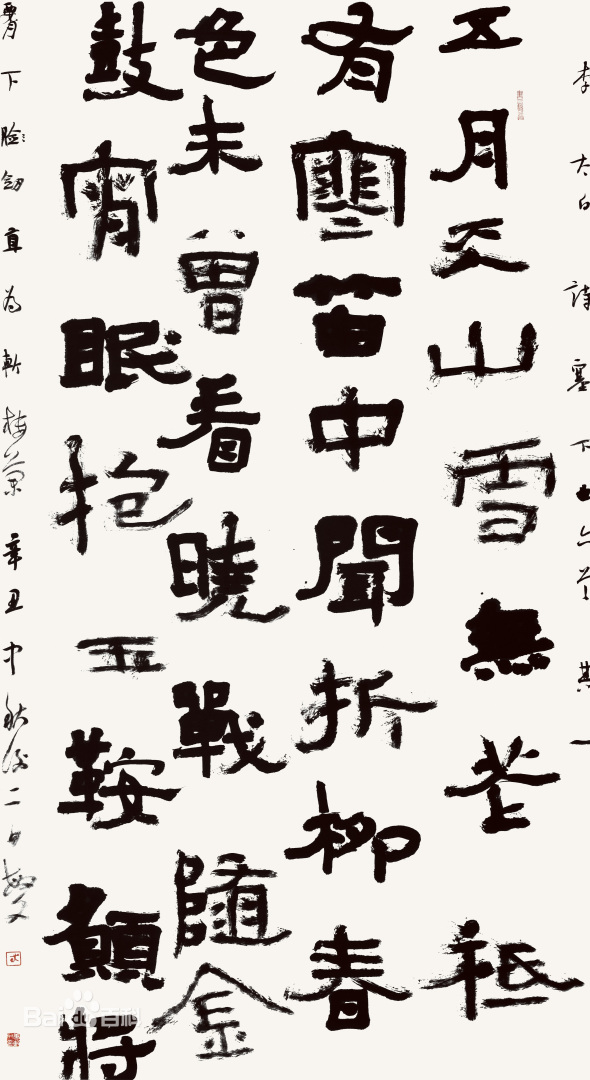 李太白詩塞下曲六首其一
五月天山雪無花祗
有寒笛中聞折柳春
色未曾看曉戰隨金
鼓宵眠抱玉鞍願將
腰下臉劍直為斬樓蘭辛丑中秋後二日
Baidu百科